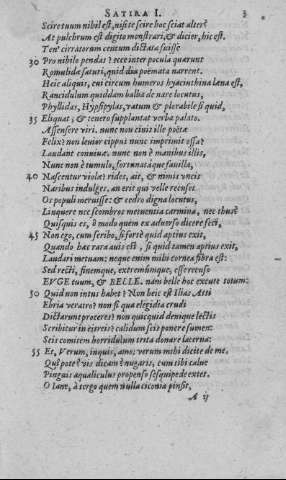 SATIRA I. 3
Scire tuum nihil est, nisi te scire hoc sciat alter?
At pulchrum est digito monstrari, & dicier, hic est.
Ten' cirratorum centum dictata fuisse
30 Pro nihilo pendas? ecce inter pocula quærunt
Romulidæ saturi, quid dia poëmata narrent.
Heic aliquis, cui circum humeros hyacinthina læna est,
Rancidulum quiddam balba de nare locutus,
Phyllidas, Hypsipylas, vatum & plorabile si quid,
35 Eliquat, & tenero supplantat verba palato.
Assensere viri. nunc non cinis ille poëtæ
Felix? non levior cippus nunc imprimit ossa?
Laudant convivæ. nunc non è manibus illis,
Nunc non è tumulo, fortunatáque favilla,
40 Nascentur violæ? rides, ait, & nimis uncis
Naribus indulges. an erit qui velle recuset
Os populi meruisse: & cedro digna locutus,
Linquere nec scombros metuentia carmina, nec thus?
Quisquis es, ô modò quem ex adverso dicere feci,
45 Non ego, cum scribo, si fortè quid aptius exit,
Quando hæc rara avis est, si quid tamen aptius exit,
Laudari metuam: neque enim mihi cornea fibra est:
Sed recti, finemque, extremúmque, esse recuso
EVGE tuum, & BELLE. nam belle hoc excute totum:
50 Quid non intus habet? Non heic est Ilias Atti
Ebria veratro? non si qua elegidia crudi
Dictarunt proceres? non quicquid denique lectis
Scribitur in citreis? calidum scis ponere sumen:
Scis comitem horridulum trita donare lacerna:
55 Et, Verum, inquis, amo: verum mihi dicite de me.
Quî pote? vis dicam? nugaris, cum tibi calve
Pinguis aqualiculus propenso sesquipede extet.
O Iane, à tergo quem nulla ciconia pinsit,
A ij